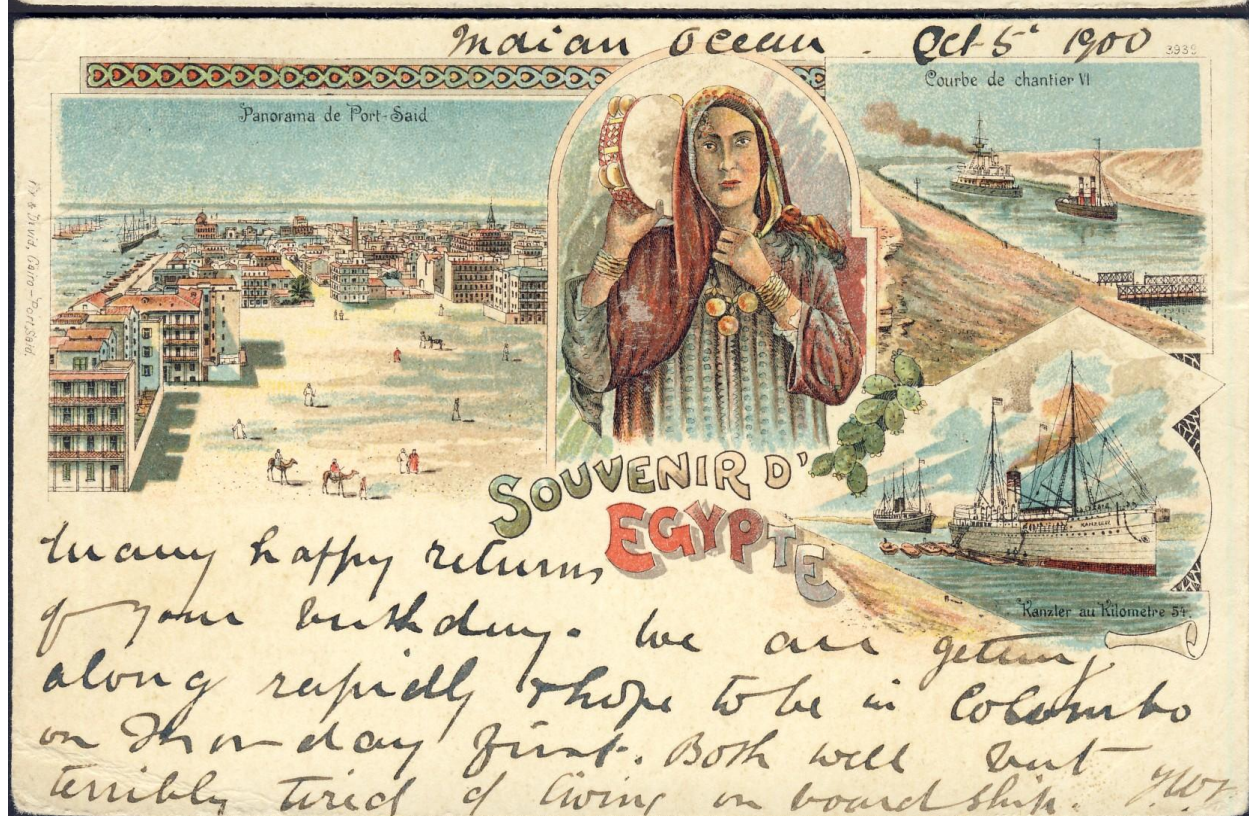 Indian Ocean. Oct 5 1900
3939
Panorama de Port-Said
Courbe de chantier VI
David, Cairo-Port Said.
SOUVENIR D'
EGYPTE
KANZLER
Kanzler au Kilometre 54.
Many happy returns
of your birthday. We are getting
along rapidly & hope to be in Colombo
on Monday first. Both well but
terribly tired of living on board ship.